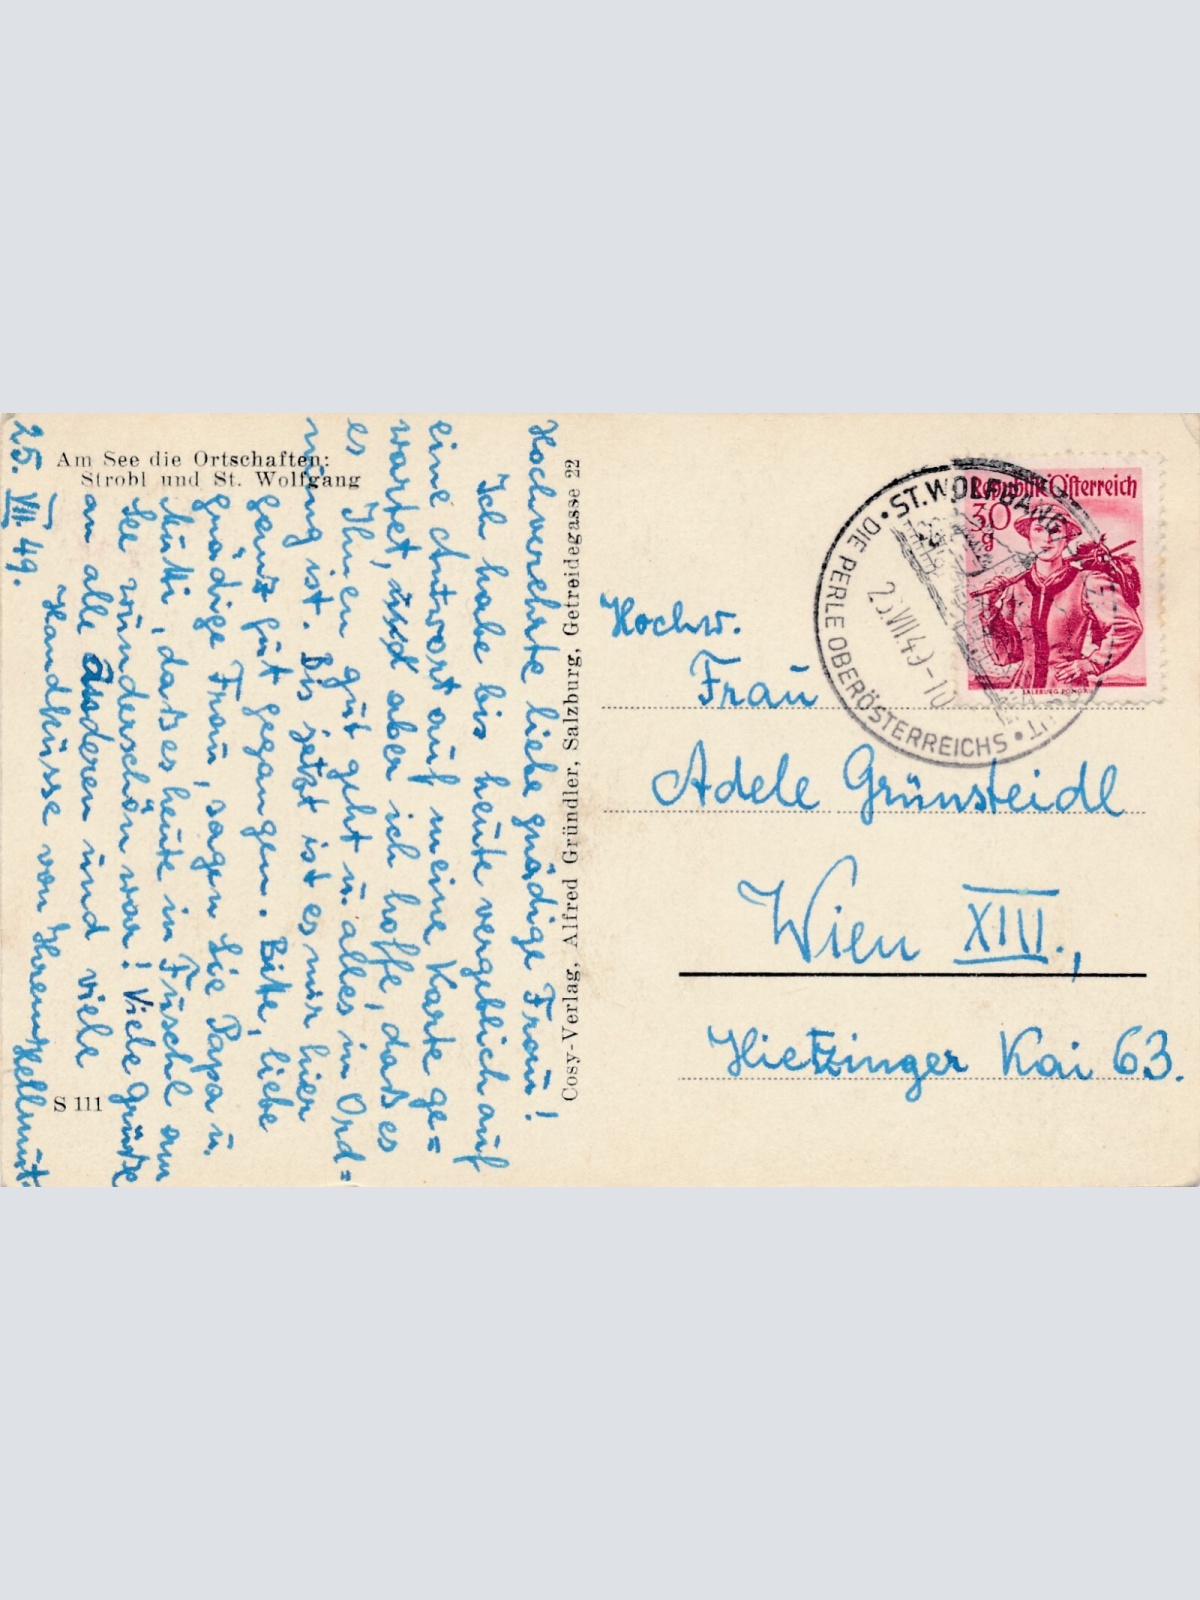 Am See die Ortschaften:
Strobl und St. Wolfgang
Hochverehrte liebe gnädige Frau!
Ich habe bis heute vergeblich auf
eine Antwort auf meine Karte ge=
wartet, und aber ich hoffe, dass es
es Ihnen gut geht u. alles in Ord=
nung ist. Bis jetzt ist es mir hier
ganz gut gegangen. Bitte, liebe
gnädige Frau, sagen Sie Papa u.
Mutti, dass es heute in Fuschl am
See wunderschön war! Viele Grüsse
an alle Anderen und viele
Handküsse von Ihrem Hellmut.
25. VII. 49.
S 111
Cosy-Verlag, Alfred Gründler, Salzburg, Getreidegasse 22
Republik Österreich
30
g
SALZBURG PONGAU
ST. WOLFGANG
DIE PERLE OBERÖSTERREICHS
VII.49-10
Hochw.
Frau
Adele Grünsteidl
Wien XIII.,
Hietzinger Kai 63.